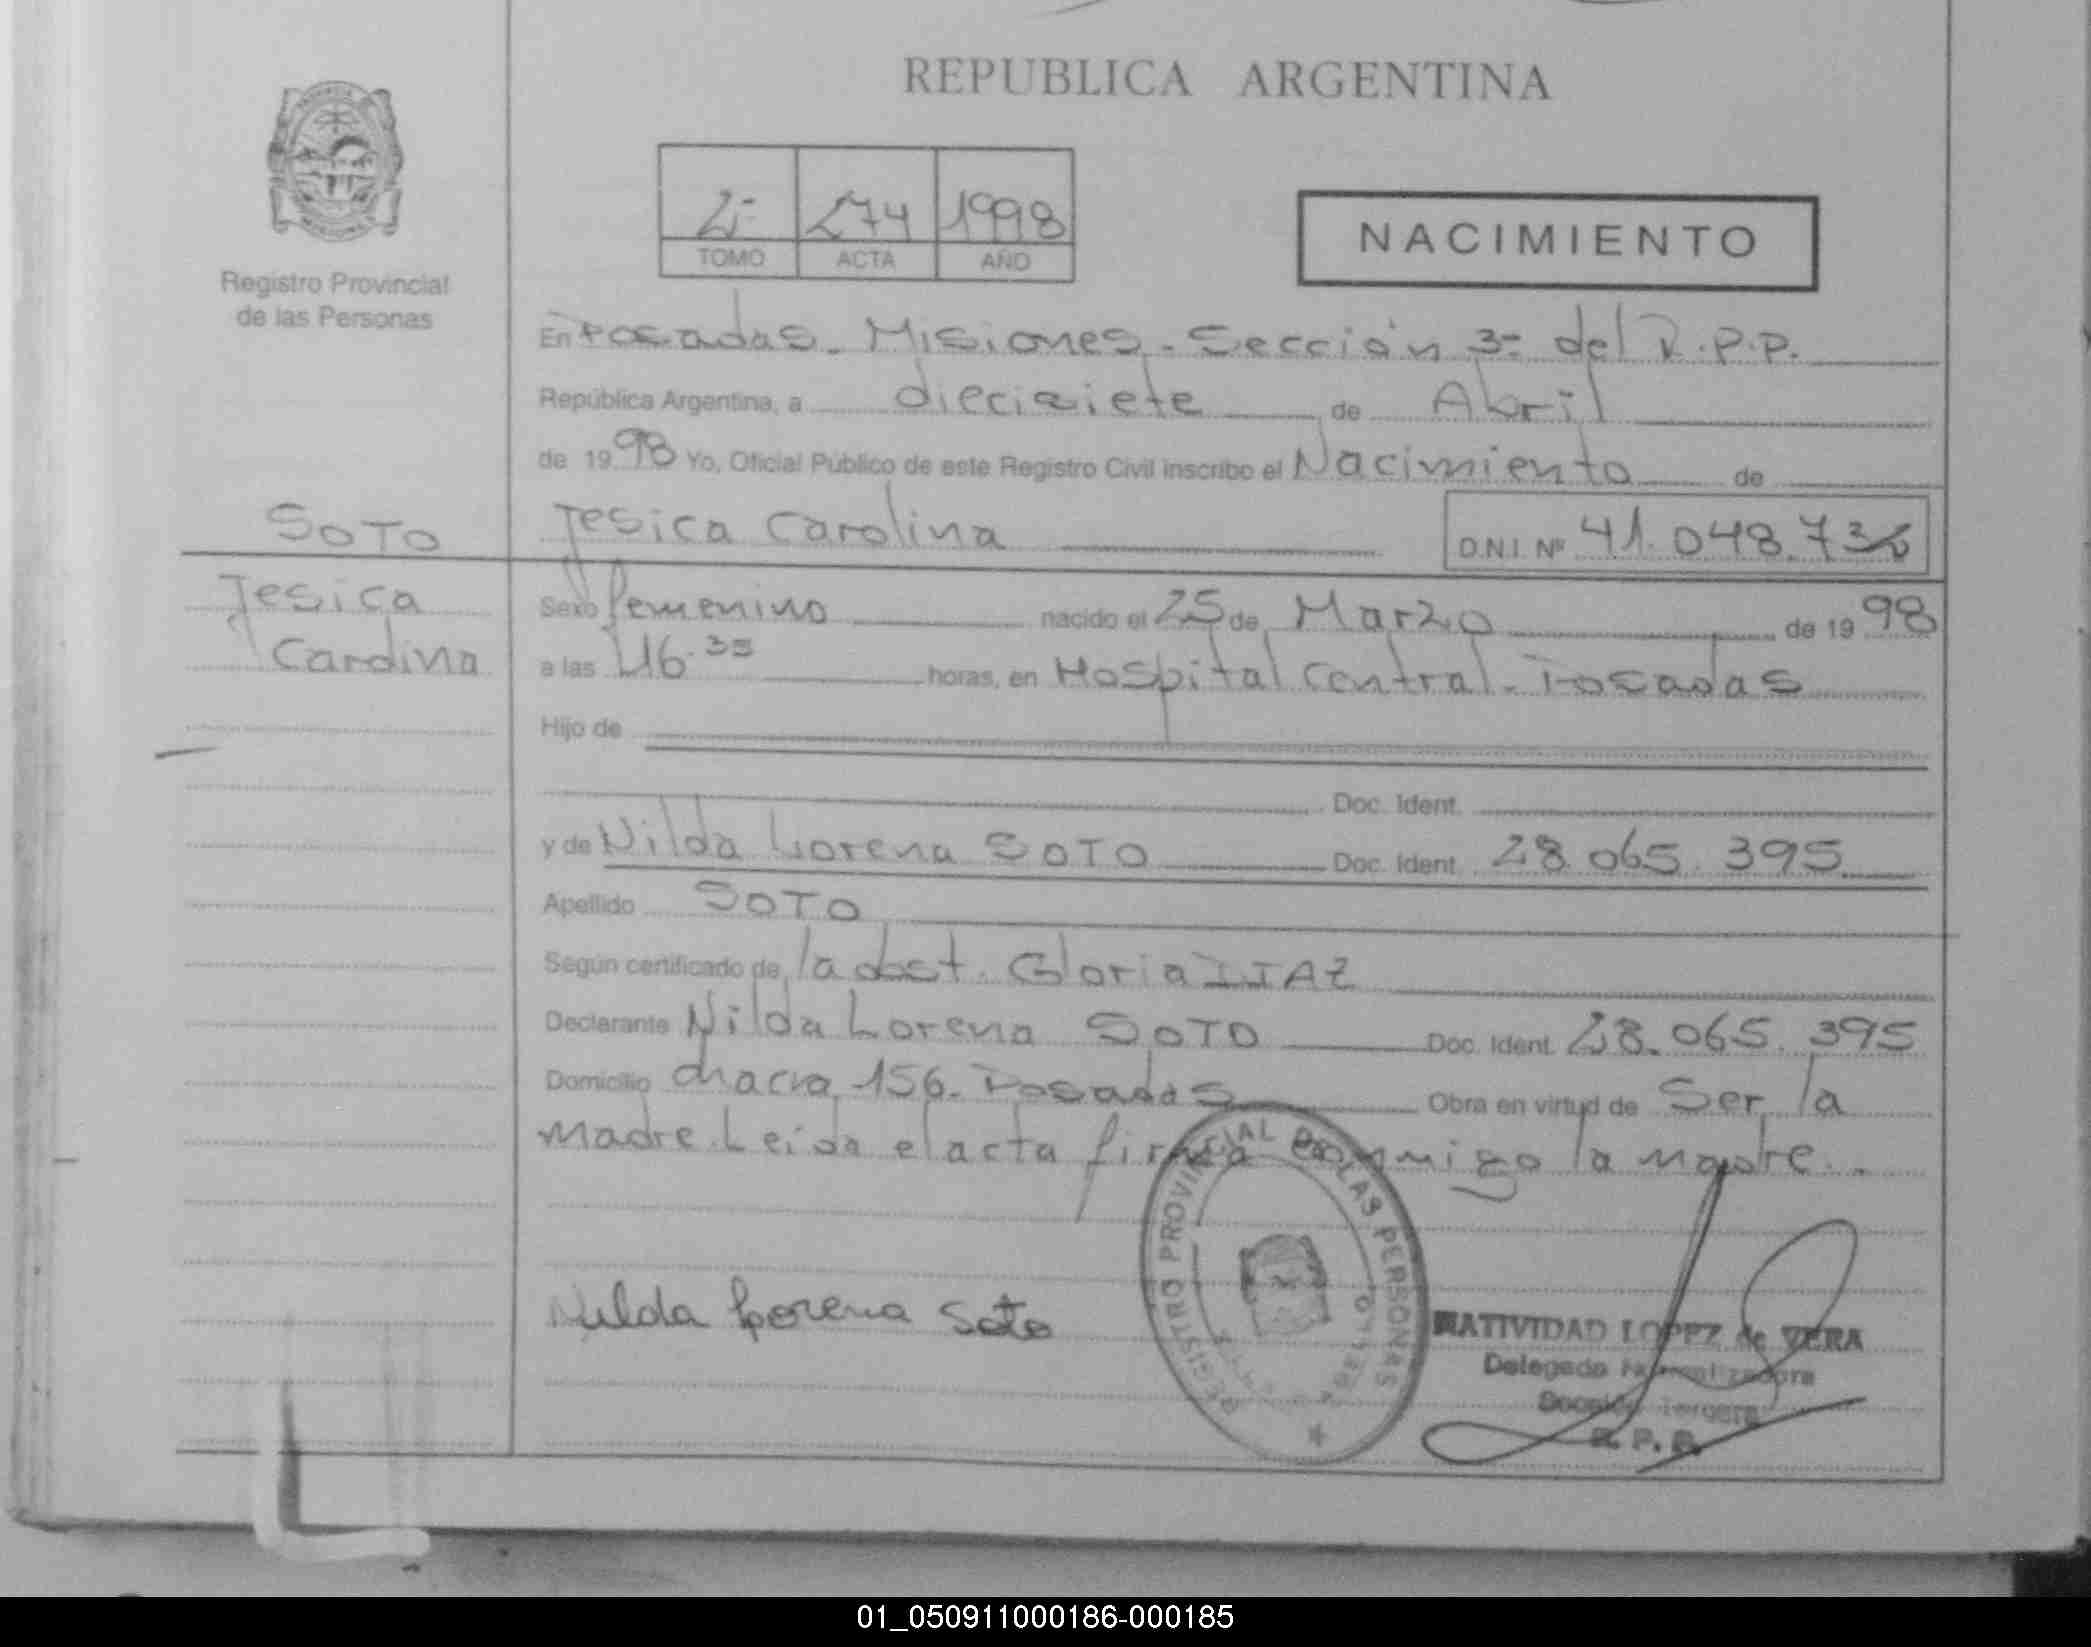 REPUBLICA ARGENTINA
2- 274 1998
TOMO ACTA AÑO
NACIMIENTO
Registro Provincial
de las Personas
En Posadas - Misiones - Sección 3- del R.P.P.
República Argentina, a diecisiete de Abril
de 1998 Yo, Oficial Público de este Registro Civil inscribo el Nacimiento de
SOTO
Jesica Carolina
Jesica Carolina D.N.I. Nº 41.048.736
Sexo femenino nacido el 25 de Marzo de 1998
a las 16.35 horas, en Hospital Central - Posadas
Hijo de
Doc. Ident.
y de Nilda Lorena SOTO Doc. Ident. 28.065.395
Apellido SOTO
Según certificado de la obst. Gloria
Declarante Nilda Lorena SOTO Doc. Ident. 28.065.395
Domicilio chacra 156 - Posadas Obra en virtud de Ser la
madre. Leida el acta firma conmigo la madre.
Nilda Lorena Soto
REGISTRO PROVINCIAL DE LAS PERSONAS
NATIVIDAD LOPEZ de VERA
Delegada
Sección Tercera
R. P. P.
01_050911000186-000185